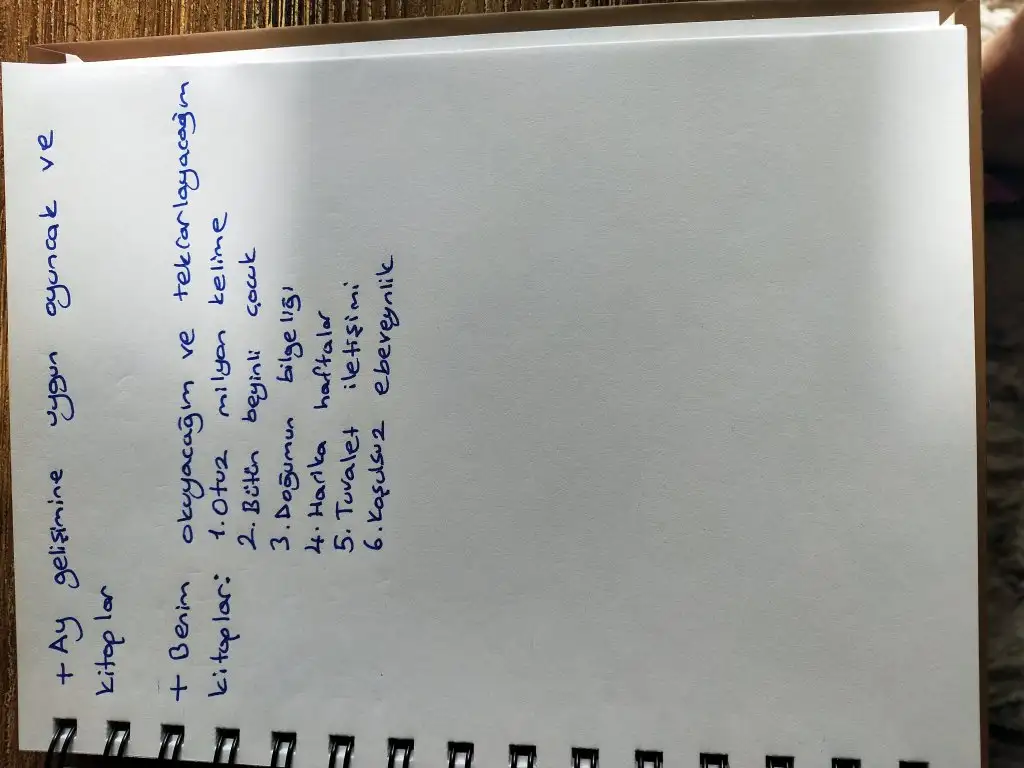 + Ay gelişimine uygun oyuncak ve
kitaplar
+ Benim okuyacağım ve tekrarlayacağım
kitaplar: 1. Otuz milyon kelime
2. Bütün beyinli çocuk
3. Doğumun bilgeliği
4. Harika haftalar
5. Tuvalet iletişimi
6. Koşulsuz ebeveynlik